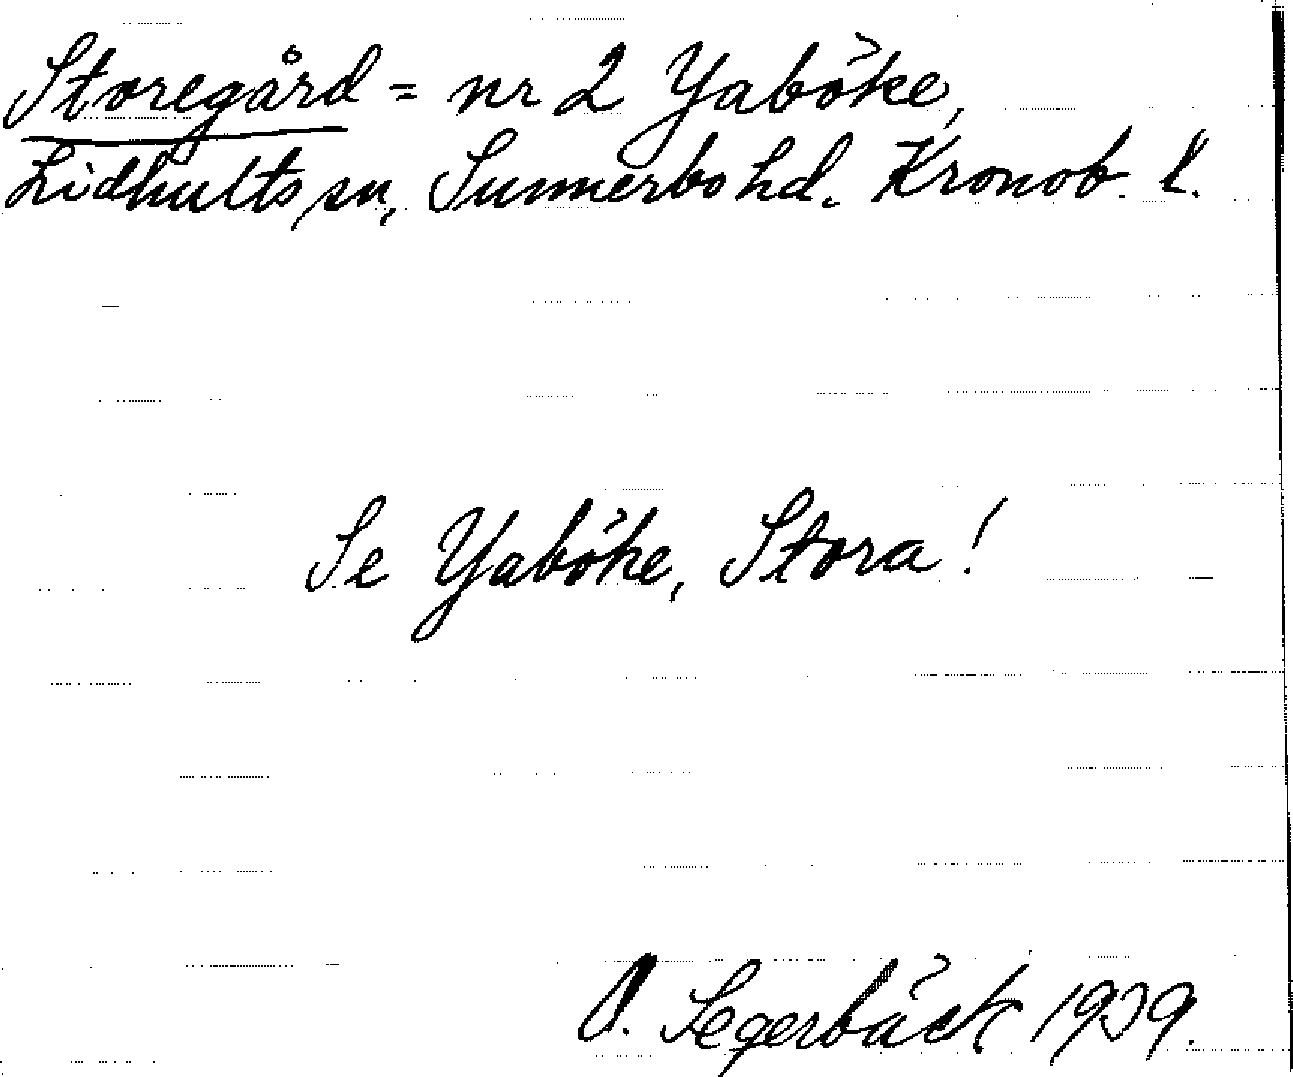 Storegård = nr 2 Yaböke,
Lidhults sn, Sunnerbo hd. Kronob. l.
Se Yaböke, Stora!
Segerbäck 1939.